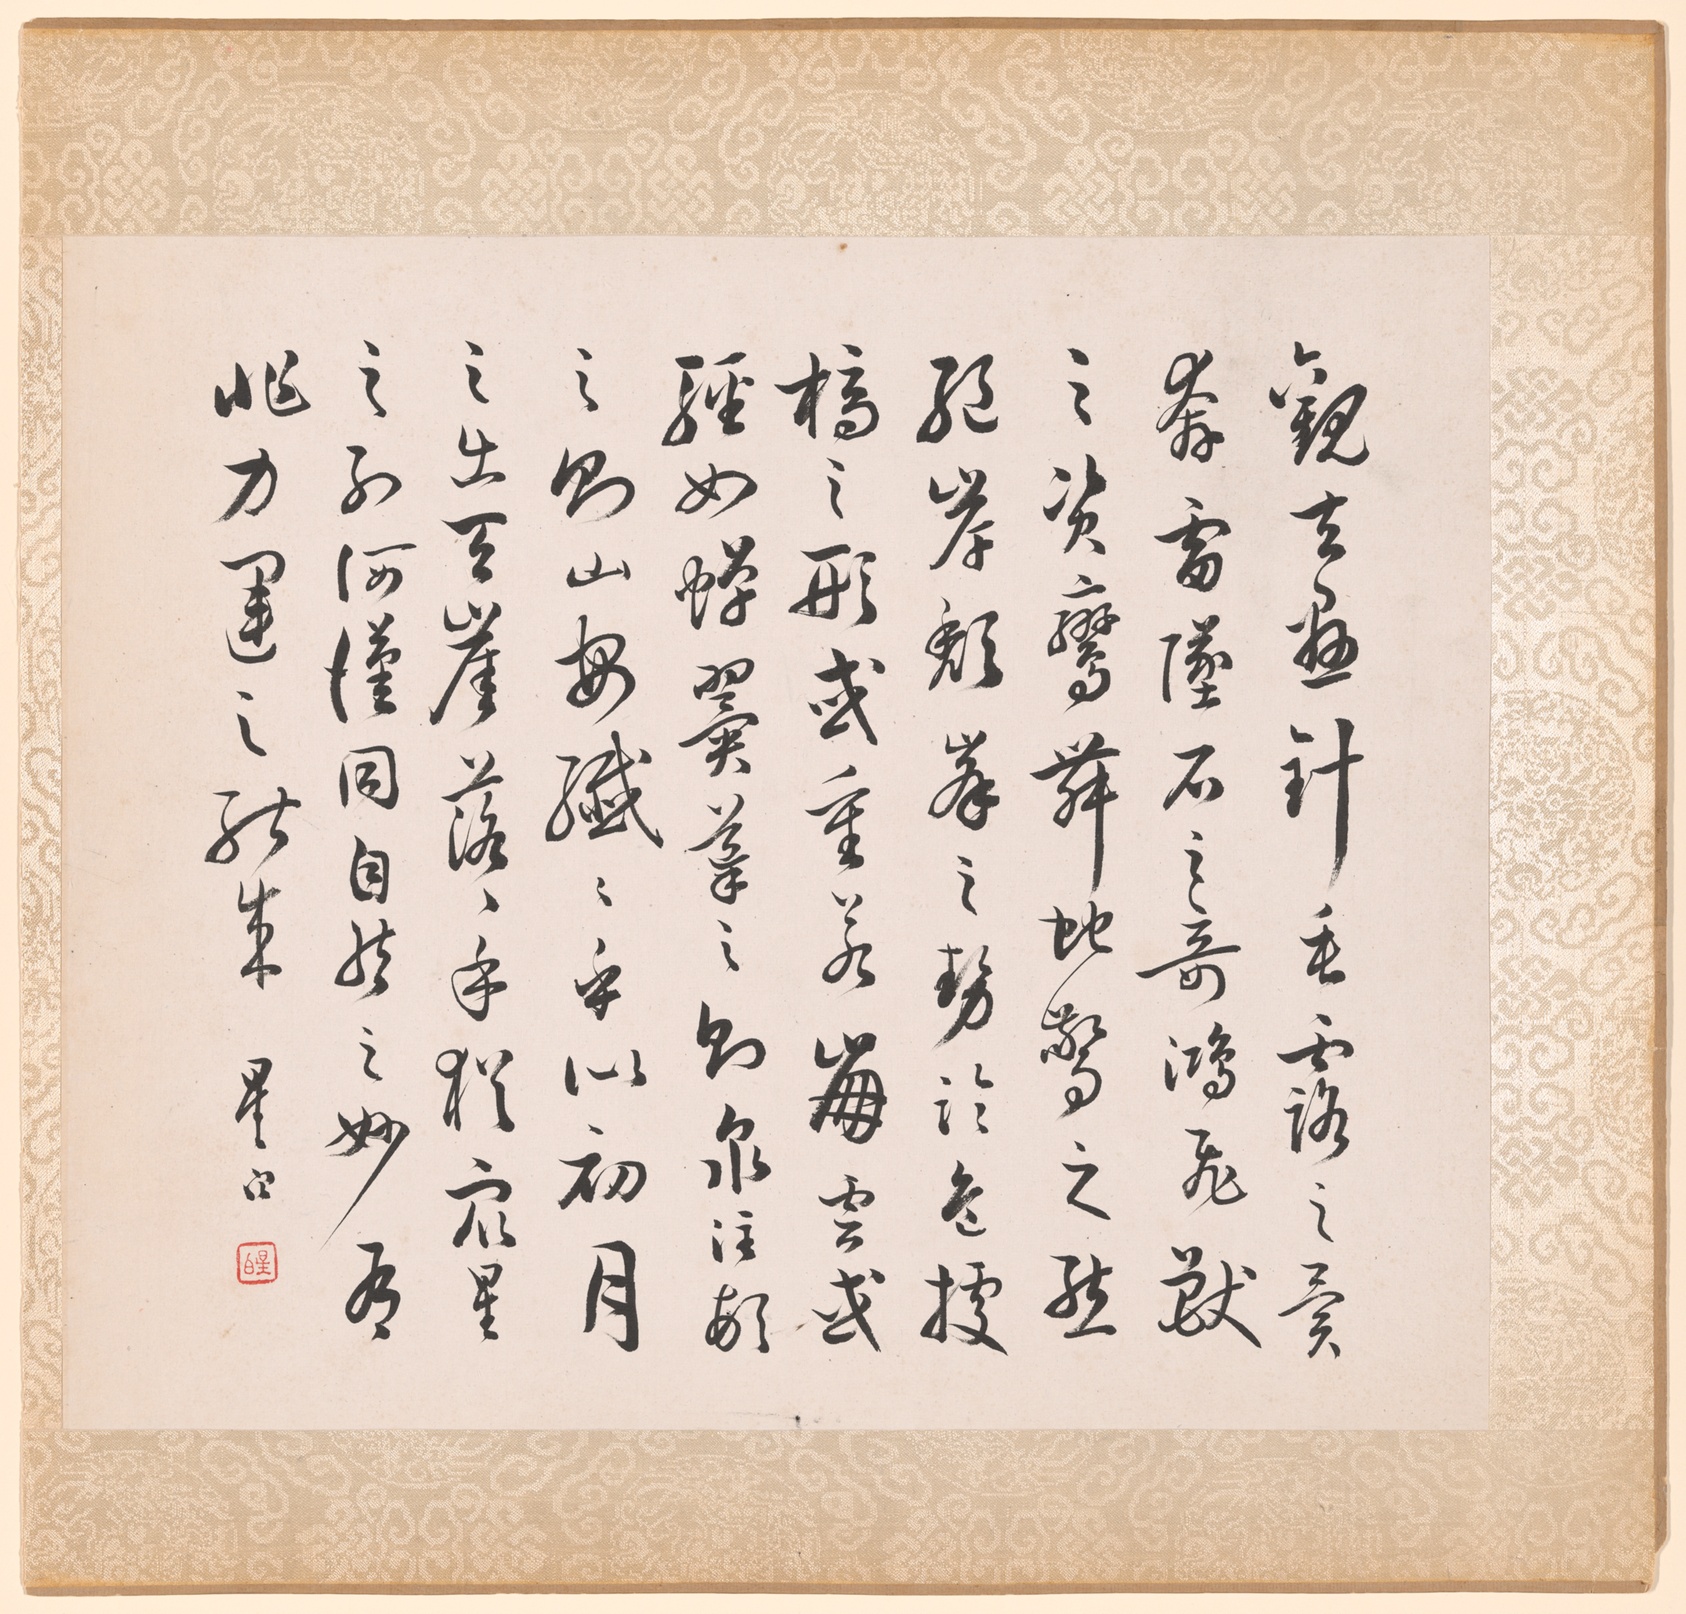 觀夫懸針垂露之異
奔雷墜石之奇鴻飛獸
之資鸞舞蛇驚之態
絕岸頹峯之勢臨危據
槁之形或重若崩雲或
輕如蟬翼導之則泉注頓
之則山安纖〻乎似初月
之出天崖落〻乎猶眾星
之列河漢同自然之妙有
非力運之能成 星白
星白